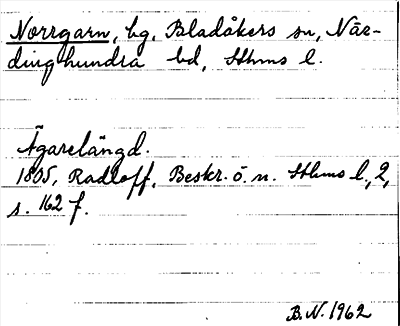 Norrgarn, hg, Bladåkers sn, När-
dinghundra hd, Sthms l.
Ägarelängd.
1805, Radloff, Beskr. ö. n. Sthms l., 2,
s. 162 f.
B.N. 1962